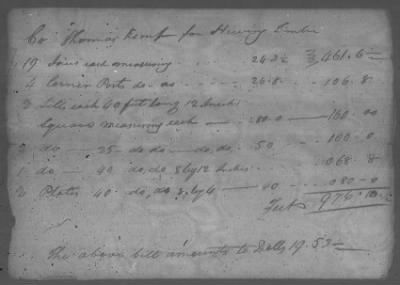 Co Thomas Kemp for Hewing Timber
19 Joice each measuring 24.3 461.6
4 Corner Posts do. do 26.8 106.8
3 Sills each 40 feet long 12 Inches
Square measuring each 80.0 160.00
2 do 25 do do do. 50 100.0
1 do 40 do, do 8 by 12 Inches 068.8
2 Plates 40 do, do 8, by 6 080.0
Feet 976.10
The above bill amounts to Dolls 19.53